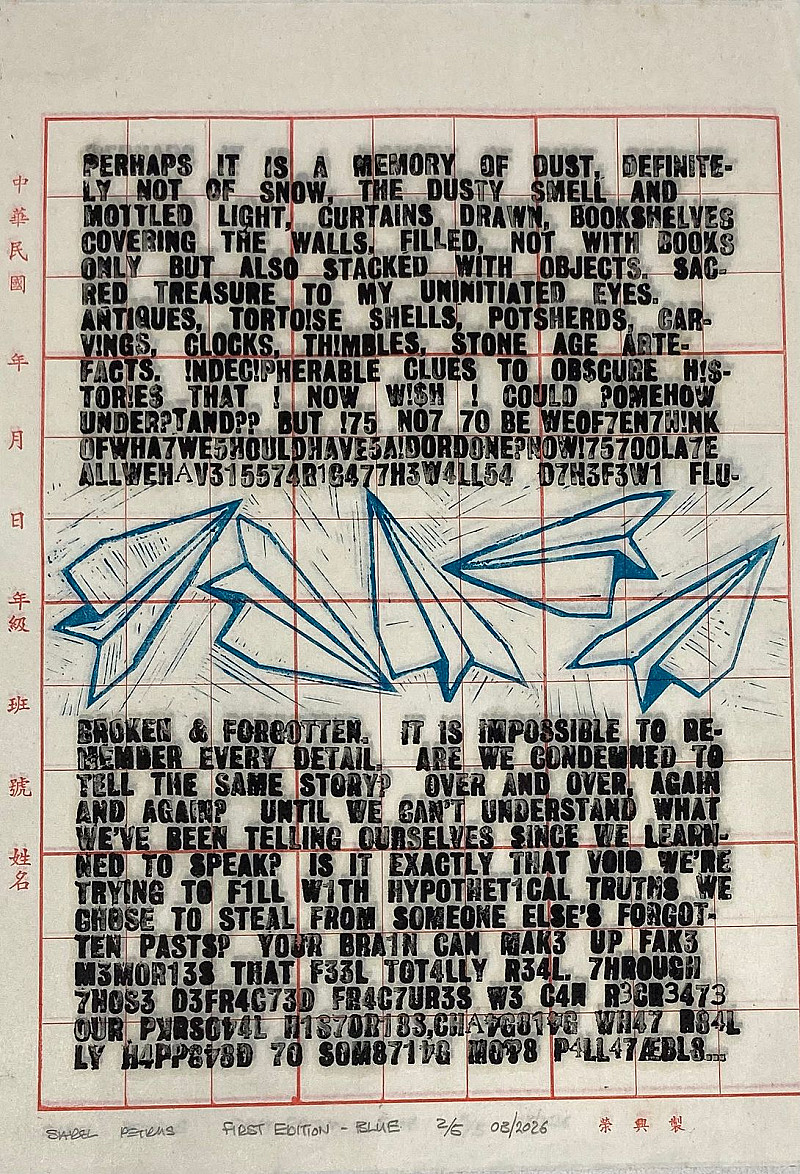 PERHAPS IT IS A MEMORY OF DUST, DEFINITE-
LY NOT OF SNOW, THE DUSTY SMELL AND
MOTTLED LIGHT, CURTAINS DRAWN, BOOKSHELVES
COVERING THE WALLS. FILLED, NOT WITH BOOKS
ONLY BUT ALSO STACKED WITH OBJECTS. SAC-
RED TREASURE TO MY UNINITIATED EYES.
ANTIQUES, TORTO!SE SHELLS, POTSHERDS, CAR-
V!NGS, CLOCKS, TH!MBLES, STONE AGE ARTE-
FACTS. !NDEC!PHERABLE CLUES TO OB$CURE H!$-
TOR!E$ THAT ! NOW W!$H ! COULD ?OMEHOW
UNDER?TAND?? BUT !75 NO7 7O BE WEOF7EN7H!NK
OFWHA7WE5HOULDHAVE5A!DORDONE?NOW!757OOLA7E
ALLWEHAV315574R1G477H3W4LL54 D7H3F3W1 FLU-
BROKEN & FORGOTTEN. IT IS IMPOSSIBLE TO RE-
MEMBER EVERY DETAIL. ARE WE CONDEMNED TO
TELL THE SAME STORY? OVER AND OVER, AGAIN
AND AGAIN? UNTIL WE CAN'T UNDERSTAND WHAT
WE'VE BEEN TELLING OURSELVES SINCE WE LEARN-
NED TO SPEAK? IS IT EXACTLY THAT VOID WE'RE
TRYING TO F1LL W1TH HYPOTHET1CAL TRUTHS WE
CHOSE TO STEAL FROM SOMEONE ELSE'S FORGOT-
TEN PASTS? YOUR BRA1N CAN MAK3 UP FAK3
M3MOR13S THAT F33L TOT4LLY R34L. 7HROUGH
7HOS3 D3FR4G73D FR4C7UR3S W3 C4N R3CR3473
OUR H1S7OR18S, WH47 R84L
LY H4PP8 7O P4LL47ÆBL8...
中華民國 年 月 日 年級 班 號 姓名
PETRUS FIRST EDITION - BLUE 2/5 03/2026
榮興製